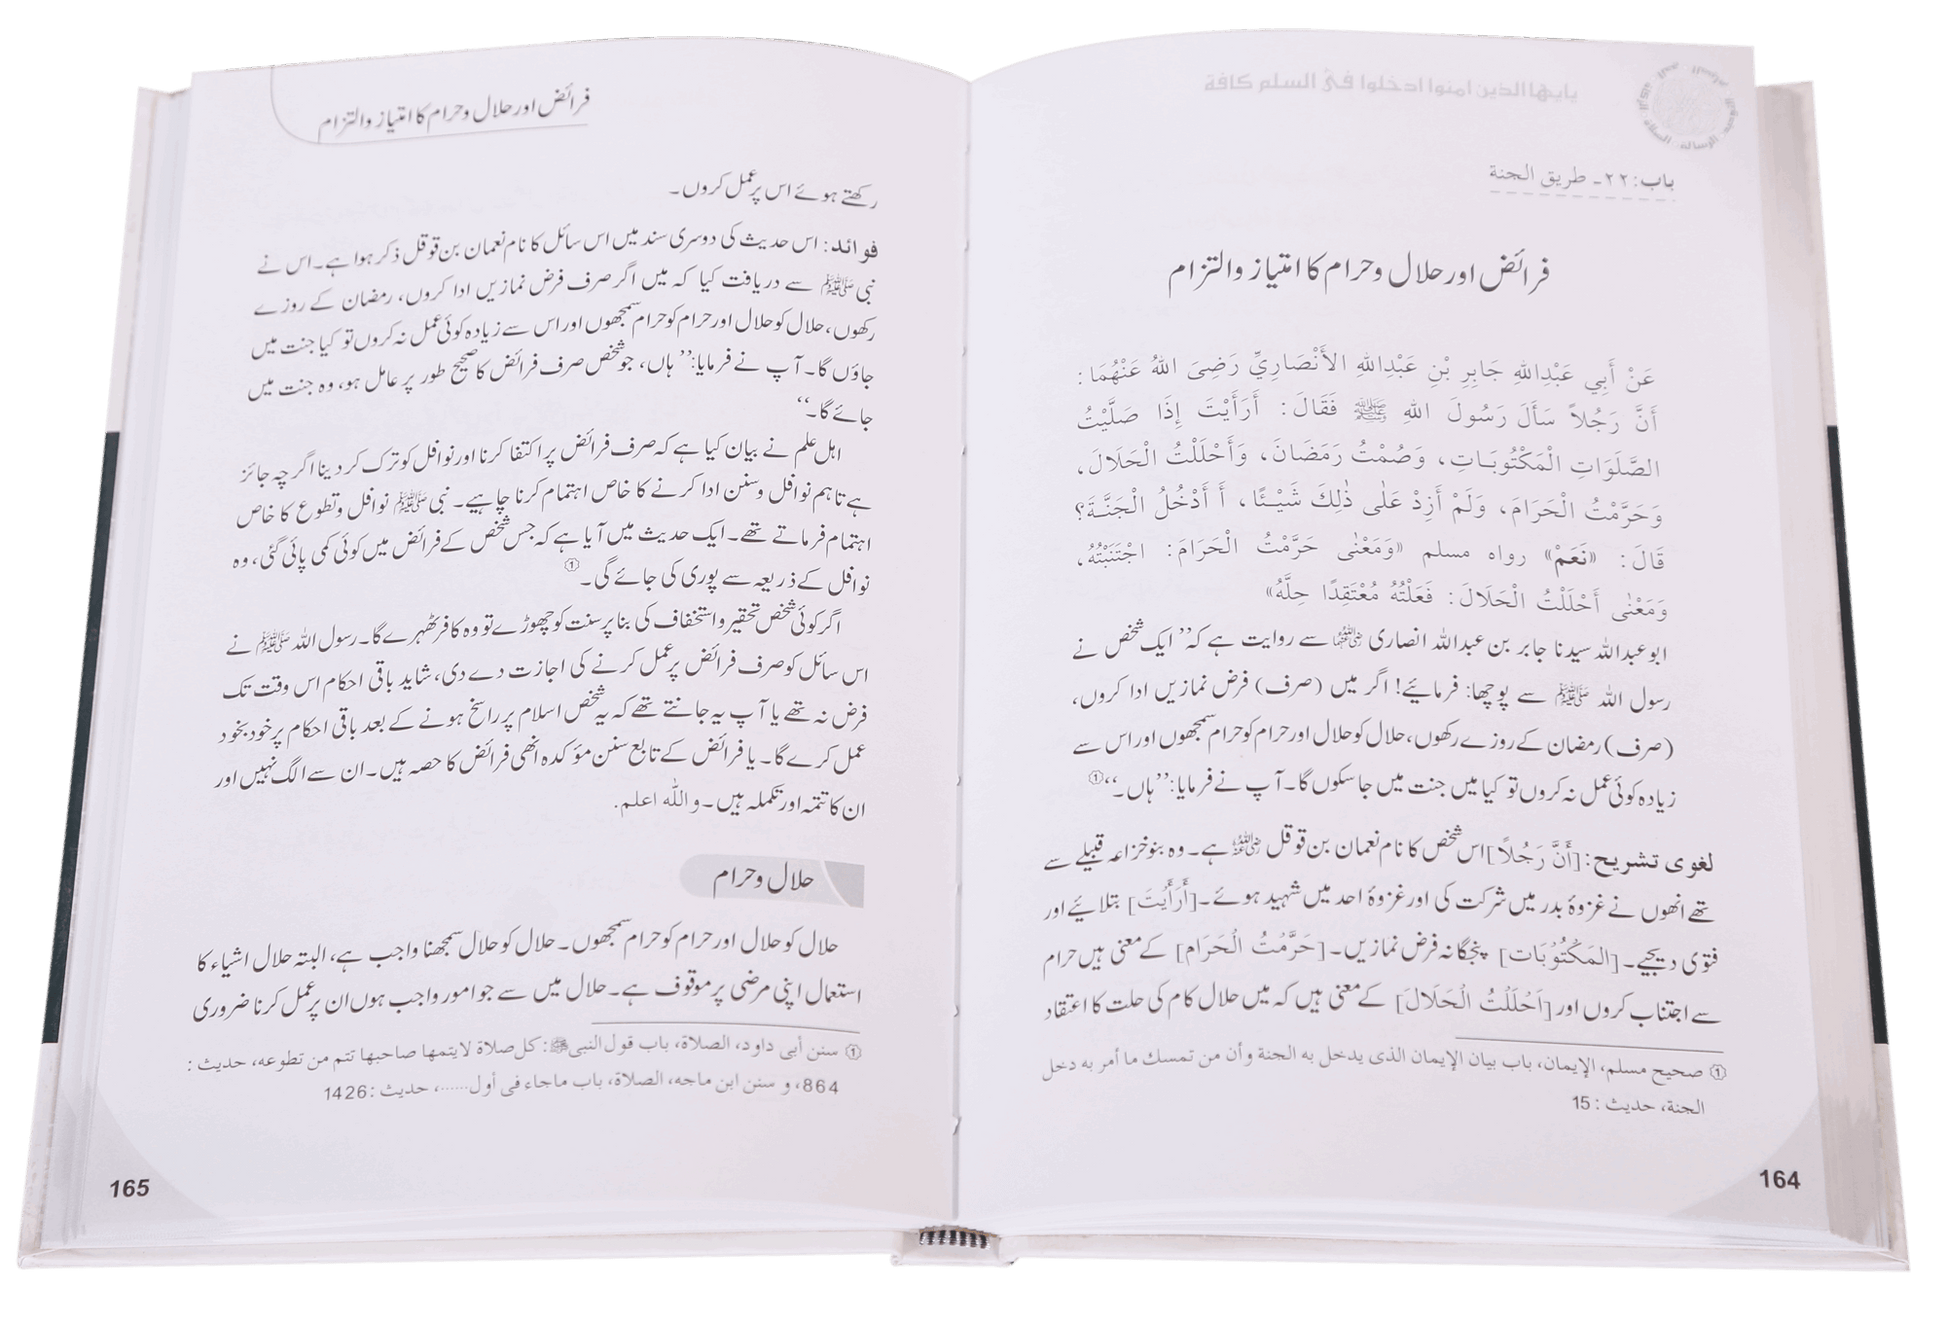 يايها الذين امنوا ادخلوا في السلم كافة
باب: ٢٢۔ طريق الجنة
فرائض اور حلال وحرام کا امتیاز والتزام
عَنْ أَبِي عَبْدِاللهِ جَابِرِ بْنِ عَبْدِاللهِ الأَنْصَارِيِّ رَضِيَ اللهُ عَنْهُمَا:
أَنَّ رَجُلاً سَأَلَ رَسُولَ اللهِ ﷺ فَقَالَ: أَرَأَيْتَ إِذَا صَلَّيْتُ
الصَّلَوَاتِ الْمَكْتُوبَاتِ، وَصُمْتُ رَمَضَانَ، وَأَحْلَلْتُ الْحَلَالَ،
وَحَرَّمْتُ الْحَرَامَ، وَلَمْ أَزِدْ عَلٰى ذٰلِكَ شَيْئًا، أَ أَدْخُلُ الْجَنَّةَ؟
قَالَ: «نَعَمْ» رواه مسلم «وَمَعْنٰى حَرَّمْتُ الْحَرَامَ: اجْتَنَبْتُهُ،
وَمَعْنٰى أَحْلَلْتُ الْحَلَالَ: فَعَلْتُهُ مُعْتَقِدًا حِلَّهُ»
ابوعبداللہ سیدنا جابر بن عبداللہ انصاری رضی اللہ عنہما سے روایت ہے کہ ’’ایک شخص نے
رسول اللہ ﷺ سے پوچھا: فرمائیے! اگر میں (صرف) فرض نمازیں ادا کروں،
(صرف) رمضان کے روزے رکھوں، حلال کو حلال اور حرام کو حرام سمجھوں اور اس سے
زیادہ کوئی عمل نہ کروں تو کیا میں جنت میں جا سکوں گا۔ آپ نے فرمایا: ’’ہاں۔‘‘ ①
لغوی تشریح: [أَنَّ رَجُلاً] اس شخص کا نام نعمان بن قوقل رضی اللہ عنہ ہے۔ وہ بنو خزاعہ قبیلے سے
تھے انھوں نے غزوۂ بدر میں شرکت کی اور غزوۂ احد میں شہید ہوئے۔ [أَرَأَيْتَ] بتلائیے اور
فتوی دیجیے۔ [المَكْتُوبَات] پنجگانہ فرض نمازیں۔ [حَرَّمْتُ الْحَرَام] کے معنی ہیں حرام
سے اجتناب کروں اور [اَحْلَلْتُ الْحَلَالَ] کے معنی ہیں کہ میں حلال کام کی حلت کا اعتقاد
① صحيح مسلم، الإيمان، باب بيان الإيمان الذى يدخل به الجنة وأن من تمسك ما أمر به دخل
الجنة، حديث: 15
164
فرائض اور حلال وحرام کا امتیاز والتزام
رکھتے ہوئے اس پر عمل کروں۔
فوائد: اس حدیث کی دوسری سند میں اس سائل کا نام نعمان بن قوقل ذکر ہوا ہے۔ اس نے
نبی ﷺ سے دریافت کیا کہ میں اگر صرف فرض نمازیں ادا کروں، رمضان کے روزے
رکھوں، حلال کو حلال اور حرام کو حرام سمجھوں اور اس سے زیادہ کوئی عمل نہ کروں تو کیا جنت میں
جاؤں گا۔ آپ نے فرمایا: ’’ہاں، جو شخص صرف فرائض کا صحیح طور پر عامل ہو، وہ جنت میں
جائے گا۔‘‘
اہل علم نے بیان کیا ہے کہ صرف فرائض پر اکتفا کرنا اور نوافل کو ترک کر دینا اگرچہ جائز
ہے تاہم نوافل وسنن ادا کرنے کا خاص اہتمام کرنا چاہیے۔ نبی ﷺ نوافل وتطوع کا خاص
اہتمام فرماتے تھے۔ ایک حدیث میں آیا ہے کہ جس شخص کے فرائض میں کوئی کمی پائی گئی، وہ
نوافل کے ذریعہ سے پوری کی جائے گی۔ ①
اگر کوئی شخص تحقیر واستخفاف کی بنا پر سنت کو چھوڑے تو وہ کافر ٹھہرے گا۔ رسول اللہ ﷺ نے
اس سائل کو صرف فرائض پر عمل کرنے کی اجازت دے دی، شاید باقی احکام اس وقت تک
فرض نہ تھے یا آپ یہ جانتے تھے کہ یہ شخص اسلام پر راسخ ہونے کے بعد باقی احکام پر خود بخود
عمل کرے گا۔ یا فرائض کے تابع سنن مؤکدہ انھی فرائض کا حصہ ہیں۔ ان سے الگ نہیں اور
ان کا تتمہ اور تکملہ ہیں۔ واللہ اعلم.
حلال وحرام
حلال کو حلال اور حرام کو حرام سمجھوں۔ حلال کو حلال سمجھنا واجب ہے، البتہ حلال اشیاء کا
استعمال اپنی مرضی پر موقوف ہے۔ حلال میں سے جو امور واجب ہوں ان پر عمل کرنا ضروری
① سنن أبى داود، الصلاة، باب قول النبى ﷺ: كل صلاة لايتمها صاحبها تتم من تطوعه، حديث:
864، و سنن ابن ماجه، الصلاة، باب ماجاء فى أول......، حديث: 1426
165